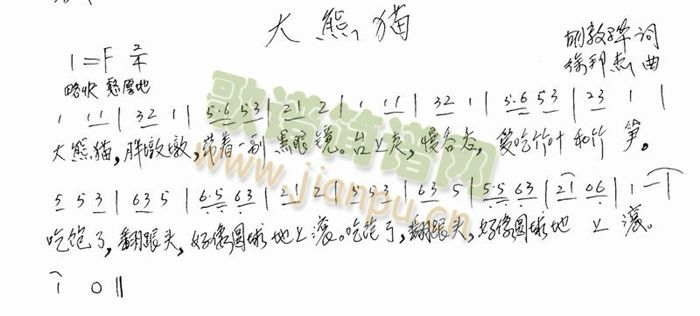 大熊猫
1=F 2/4
胡敦骅 词
徐邦杰 曲
稍快 憨厚地
1 11 | 32 1 | 5·6 53 | 21 2 | 1 11 | 32 1 | 5·6 53 | 23 1 |
大熊猫,胖墩墩,带着一副黑眼镜。台上走,慢台走,爱吃竹叶和竹笋。
5 53 | 63 5 | 6·5 63 | 21 2 | 5 53 | 63 5 | 5·5 63 | 21 06 | 1 — |
吃饱了,翻跟头,好像圆球地上滚。吃饱了,翻跟头,好像圆球地 上 滚。
1 0 ‖
歌谱简谱网
www.jianpu.cn